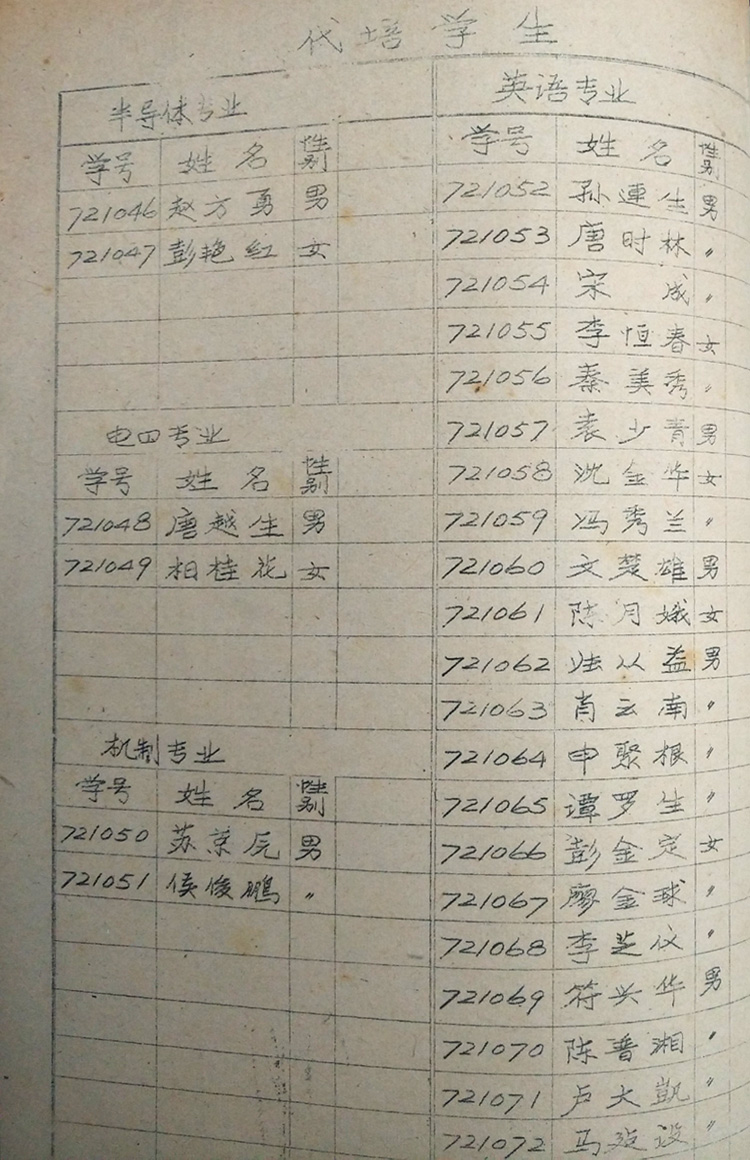 代培学生
半导体专业
学号 姓名 性别
721046 赵方勇 男
721047 彭艳红 女
电四专业
学号 姓名 性别
721048 唐越生 男
721049 柏桂花 女
机制专业
学号 姓名 性别
721050 苏京 男
721051 侯俊鹏 〃
英语专业
学号 姓名 性别
721052 孙連生 男
721053 唐时林 〃
721054 宋成 〃
721055 李恒春 女
721056 秦美秀 〃
721057 袁少青 男
721058 沈金华 女
721059 冯秀兰 〃
721060 文楚雄 男
721061 陈月娥 女
721062 从益 男
721063 肖云南 〃
721064 申聚根 〃
721065 谭罗生 〃
721066 彭金定 女
721067 廖金球 〃
721068 李芝仪 〃
721069 符兴华 男
721070 陈普湘 〃
721071 卢大凯 〃
721072 马设 〃